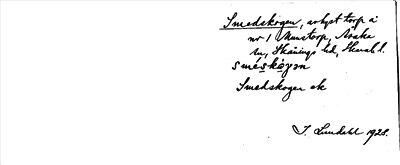 Smedskogen, avlyst torp å
nr 1 Munstorp, Acaka
sn, Skånings hd, Skarab. l.
smé̱skó̱gən
Smedskogen ek
J. Lundahl 1928.